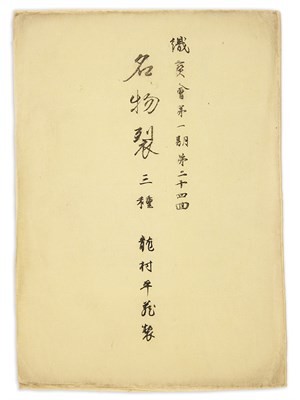 織寳會第一期第二十四回
名物裂三種 龍村平蔵製